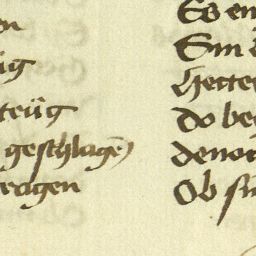 en
ug
teüg
geschlagē
ragen
Es en
Sin
Hette
do be
denor
Ob sin